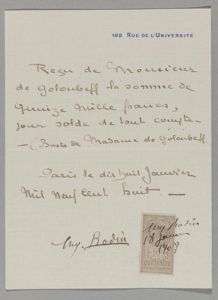 182, RUE DE L'UNIVERSITÉ
Reçu de Monsieur
de Goloubeff la somme de
quinze mille francs,
pour solde de tout compte
— (Buste de Madame de Goloubeff.
Paris le dix huit Janvier
Mil neuf cent huit —
Aug. Rodin
Aug Rodin
18 Janv
1908
QUITTANCES